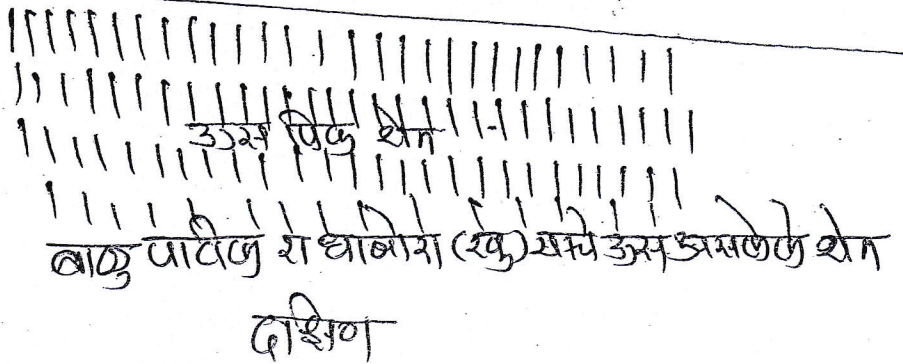 ऊस पिक शेत
बाळु पाटील रा धाबोरा (रवु) यांचे ऊस असलेले शेत
दक्षिण